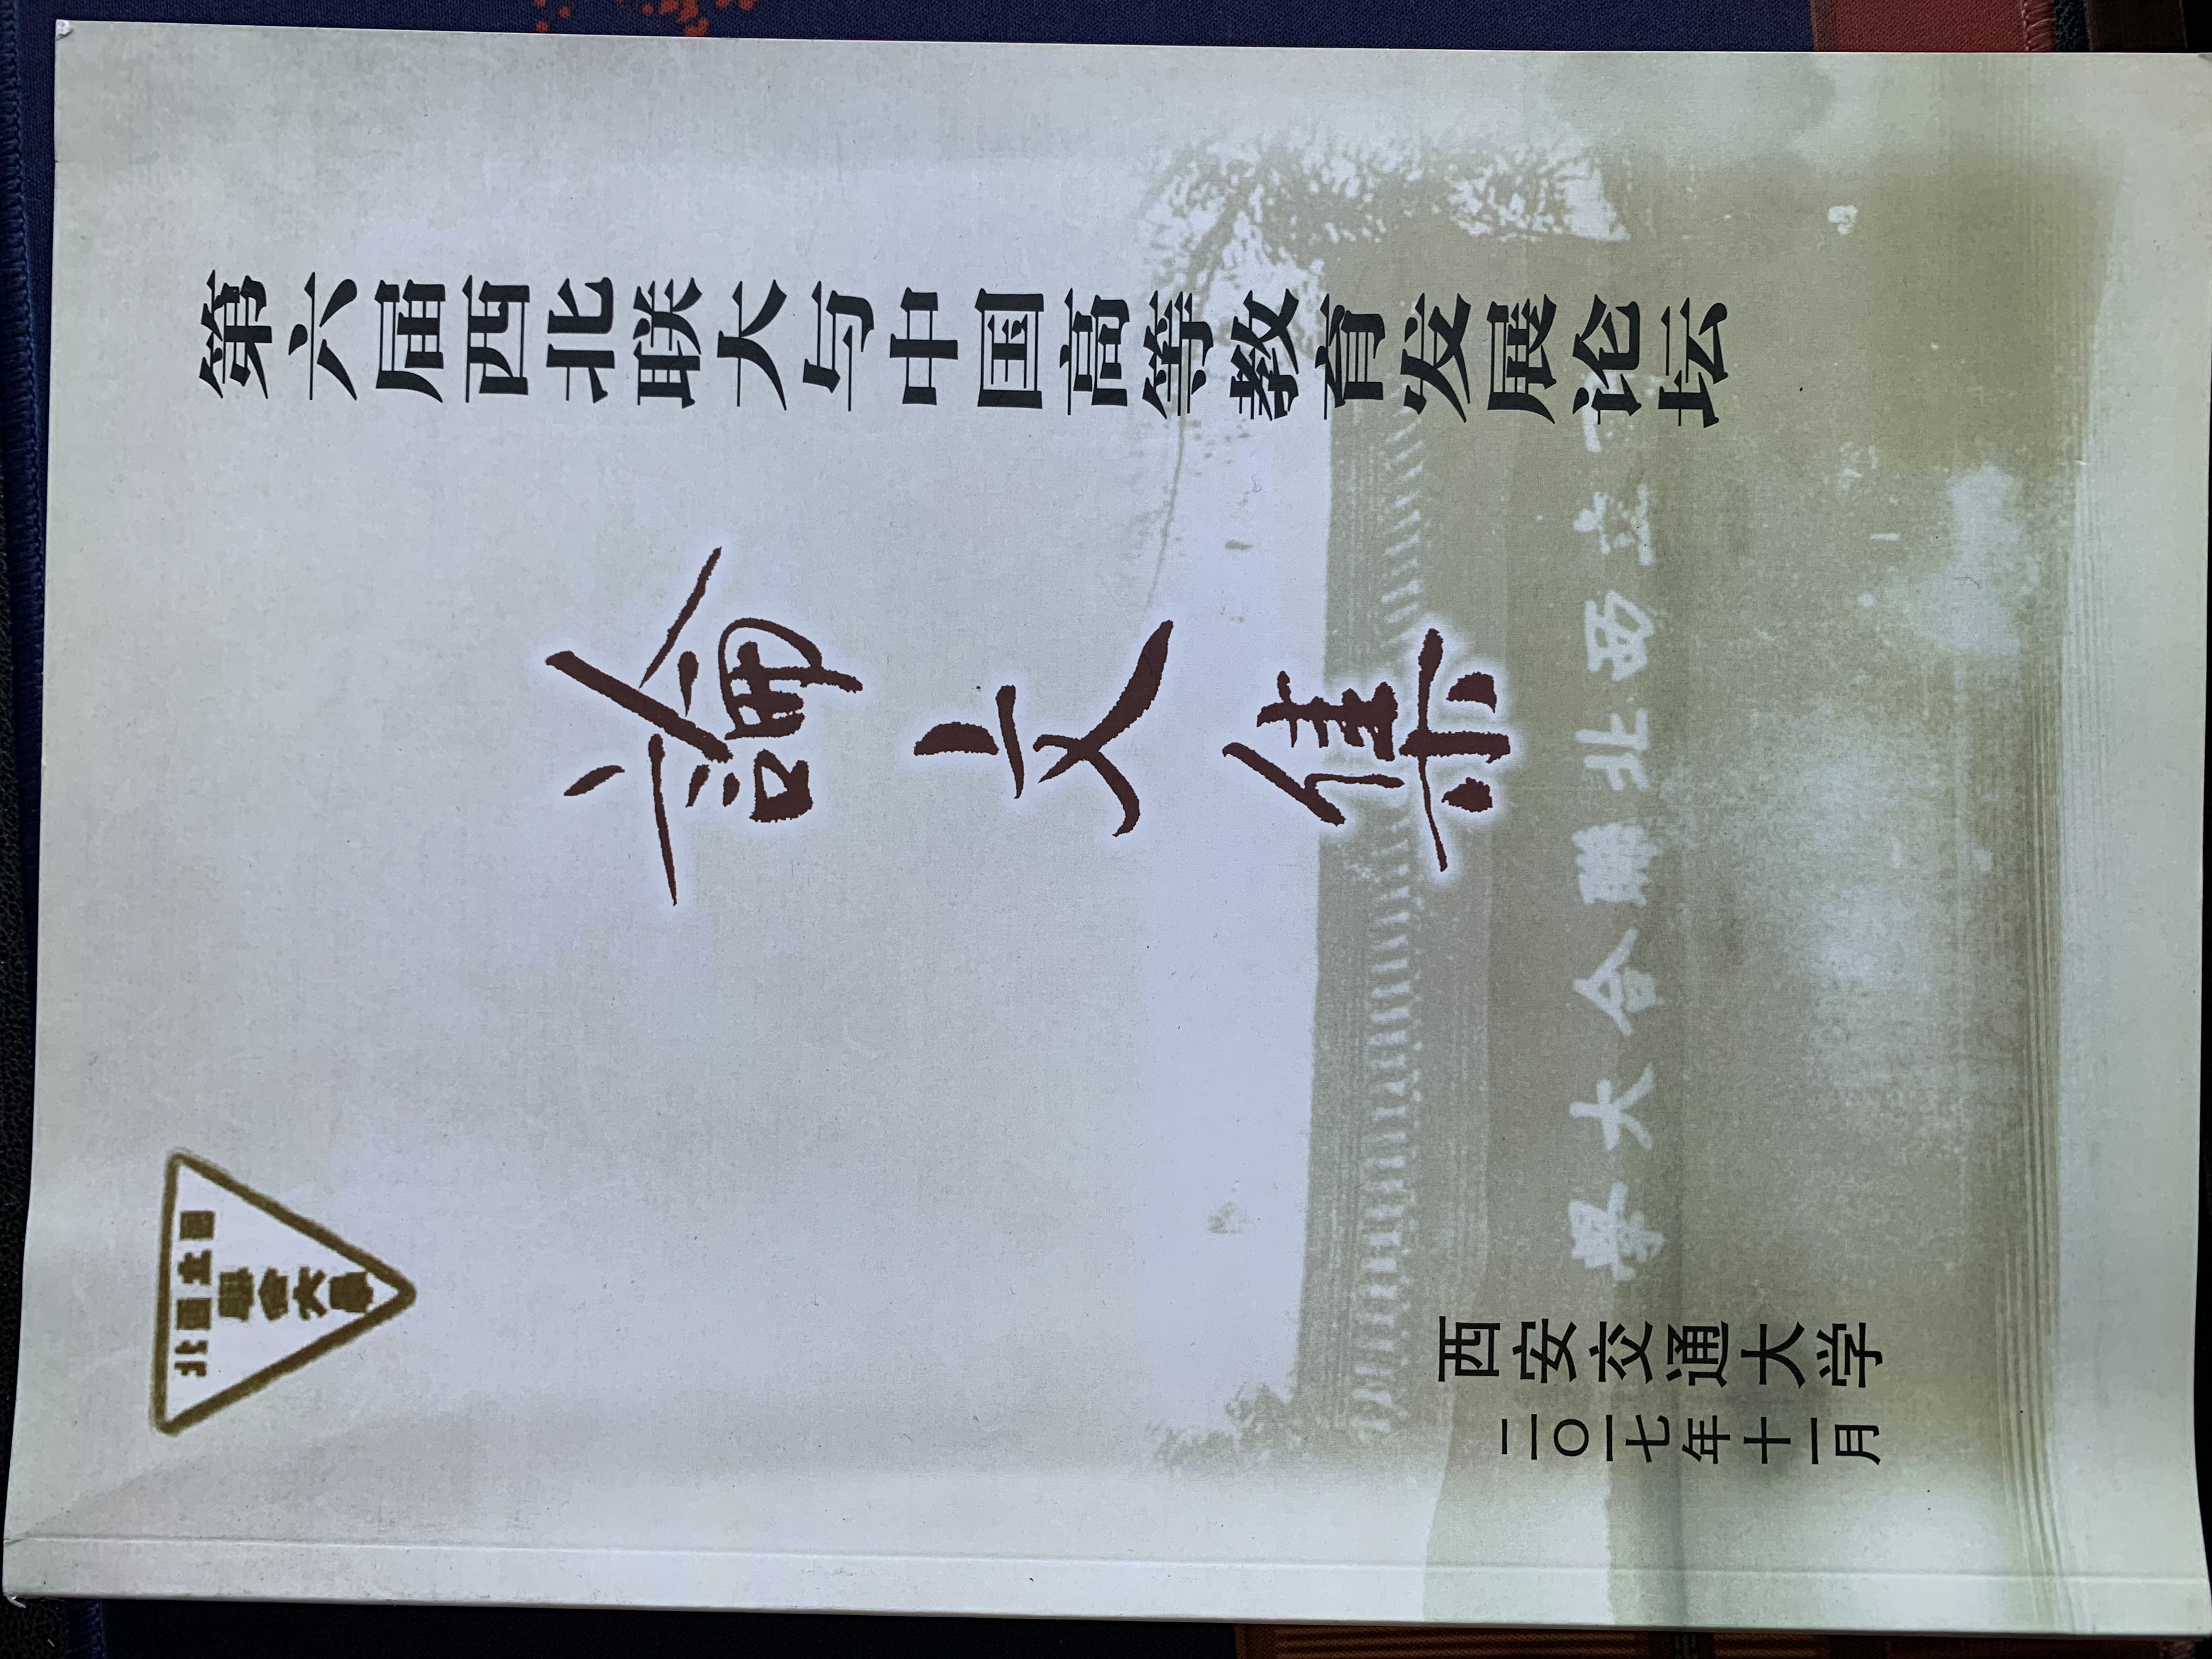 第六届西北联大与中国高等教育发展论坛
論文集
國立西北
聯合大學
立西北聯合大學
西安交通大学
二〇一七年十一月